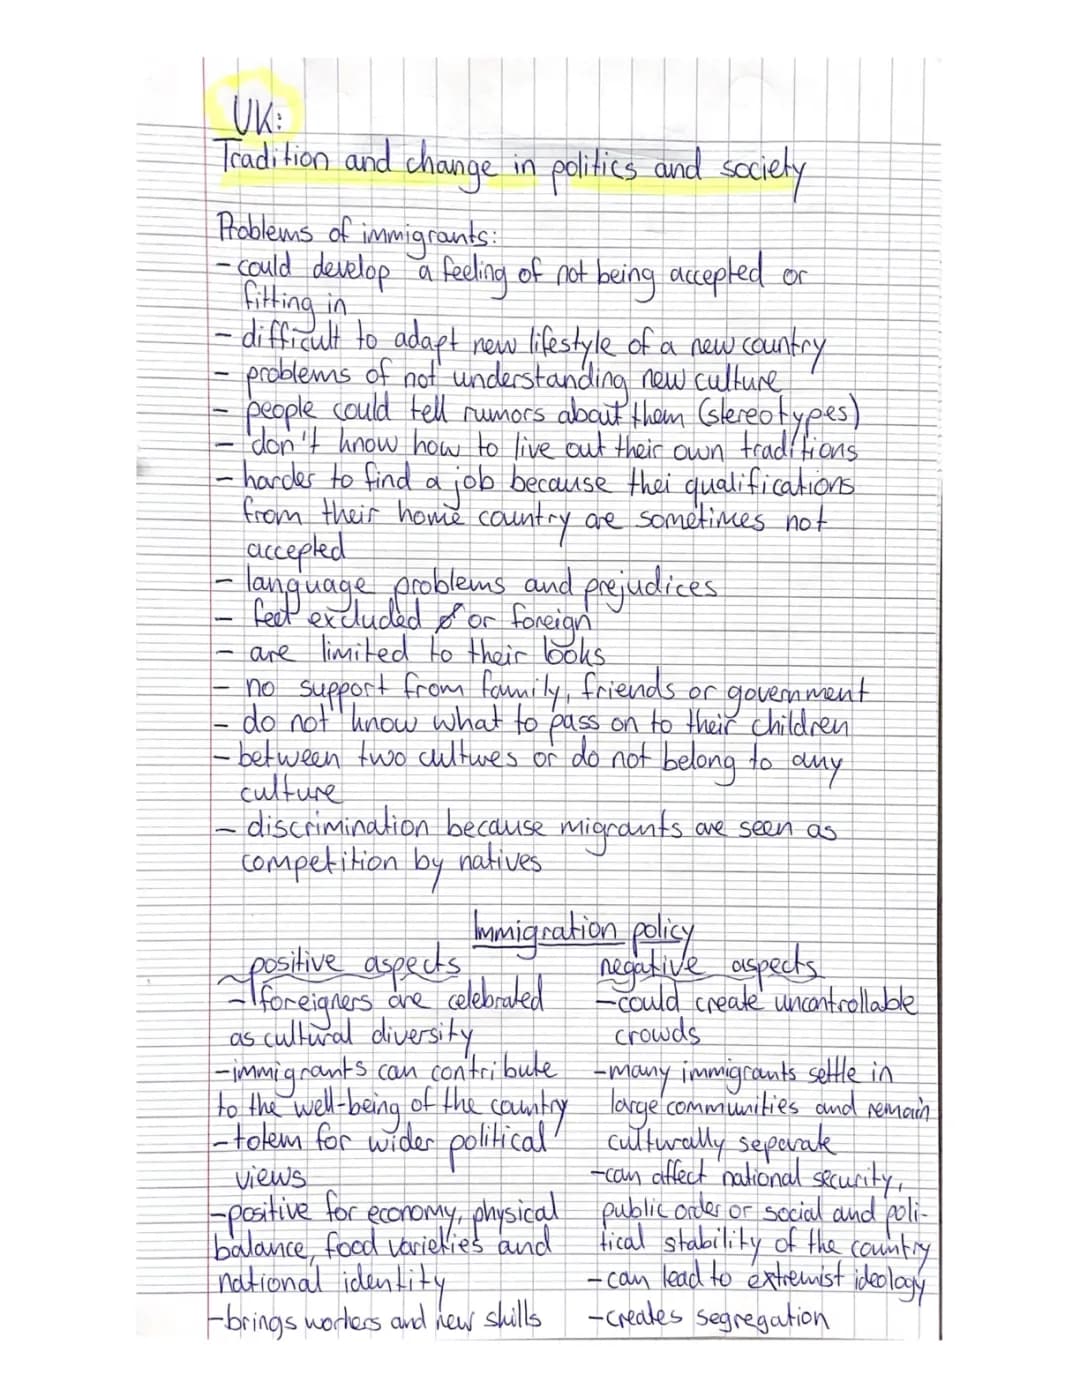 UK:
Tradition and change in politics and society
Problems of immigrants:
- could develop a feeling of not being accepted or
fitting in
- difficult to adapt new lifestyle of a new country
- problems of not understanding new culture
- people could tell rumors about them (stereotypes)
- don't know how to live out their own traditions
- harder to find a job because thei qualifications
from their home country are sometimes not
accepted
- language problems and prejudices
- feel excluded or foreign
- are limited to their looks
- no support from family, friends or government
- do not know what to pass on to their children
- between two cultures or do not belong to any
culture
- discrimination because migrants are seen as
competition by natives
Immigration policy
positive aspects
- foreigners are celebrated
as cultural diversity
- immigrants can contribute
to the well-being of the country
- totem for wider political
views
- positive for economy, physical
balance, food varieties and
national identity
- brings workers and new skills
negative aspects
- could create uncontrollable
crowds
- many immigrants settle in
large communities and remain
culturally separate
- can affect national security,
public order or social and poli-
tical stability of the country
- can lead to extremist ideology
- creates segregation